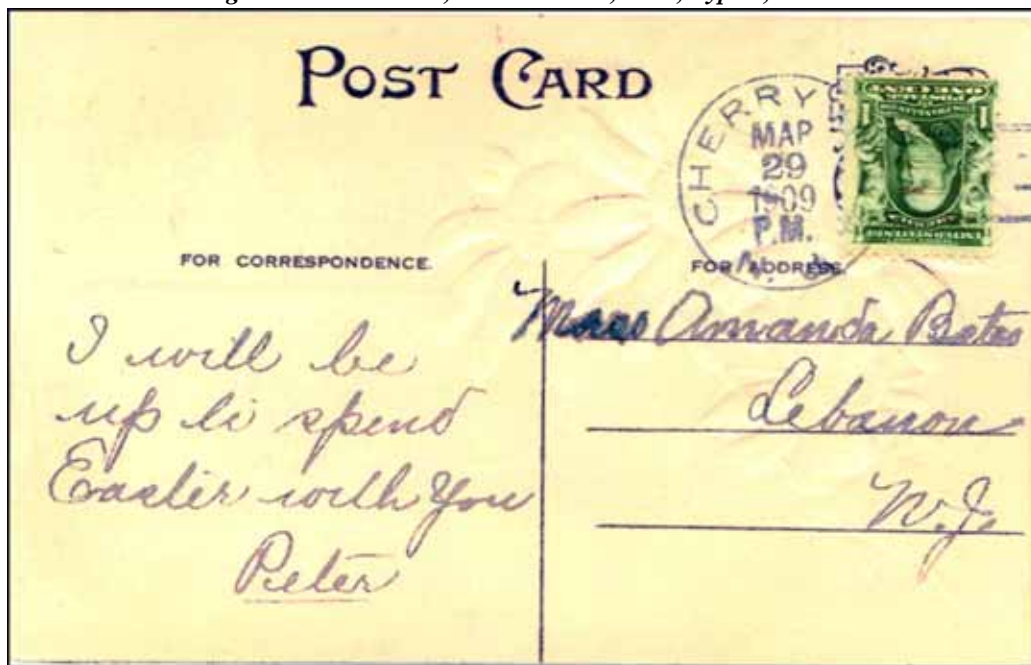 POST CARD
CHERRY
MAR
29
1909
P.M.
FOR CORRESPONDENCE.
FOR ADDRESS.
I will be
up to spend
Easter with you
Peter
Miss Amanda
Lebanon
N.J.